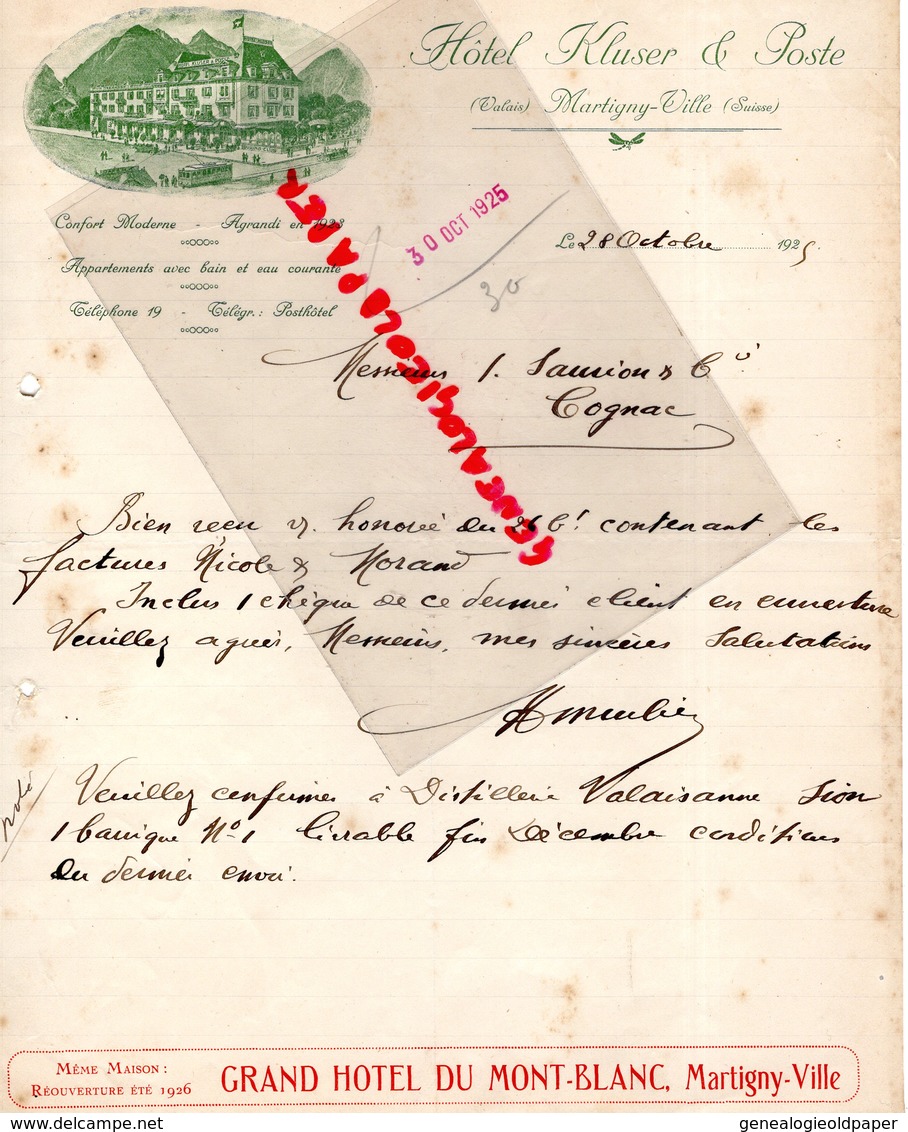 HOTEL KLUSER & POSTE
Hôtel Kluser & Poste
(Valais) Martigny-Ville (Suisse)
Confort Moderne - Agrandi en 1923
Appartements avec bain et eau courante
Téléphone 19 - Télégr.: Posthôtel
30 OCT 1925
Le 28 Octobre 1925
30
Messieurs J. Saurion & Cie
Cognac
GENEALOGIEOLDPAPER
Bien reçu v. honorée du 26 ct contenant les
factures Nicole & Morand
Inclus 1 chèque de ce dernier client en couverture
Veuillez agréer, Messieurs, mes sincères salutations
noté
Veuillez confirmer à Distillerie Valaisanne Sion
1 barrique No 1 livrable fin Décembre conditions
du dernier envoi.
MÊME MAISON:
RÉOUVERTURE ÉTÉ 1926
GRAND HOTEL DU MONT-BLANC, Martigny-Ville
genealogieoldpaper